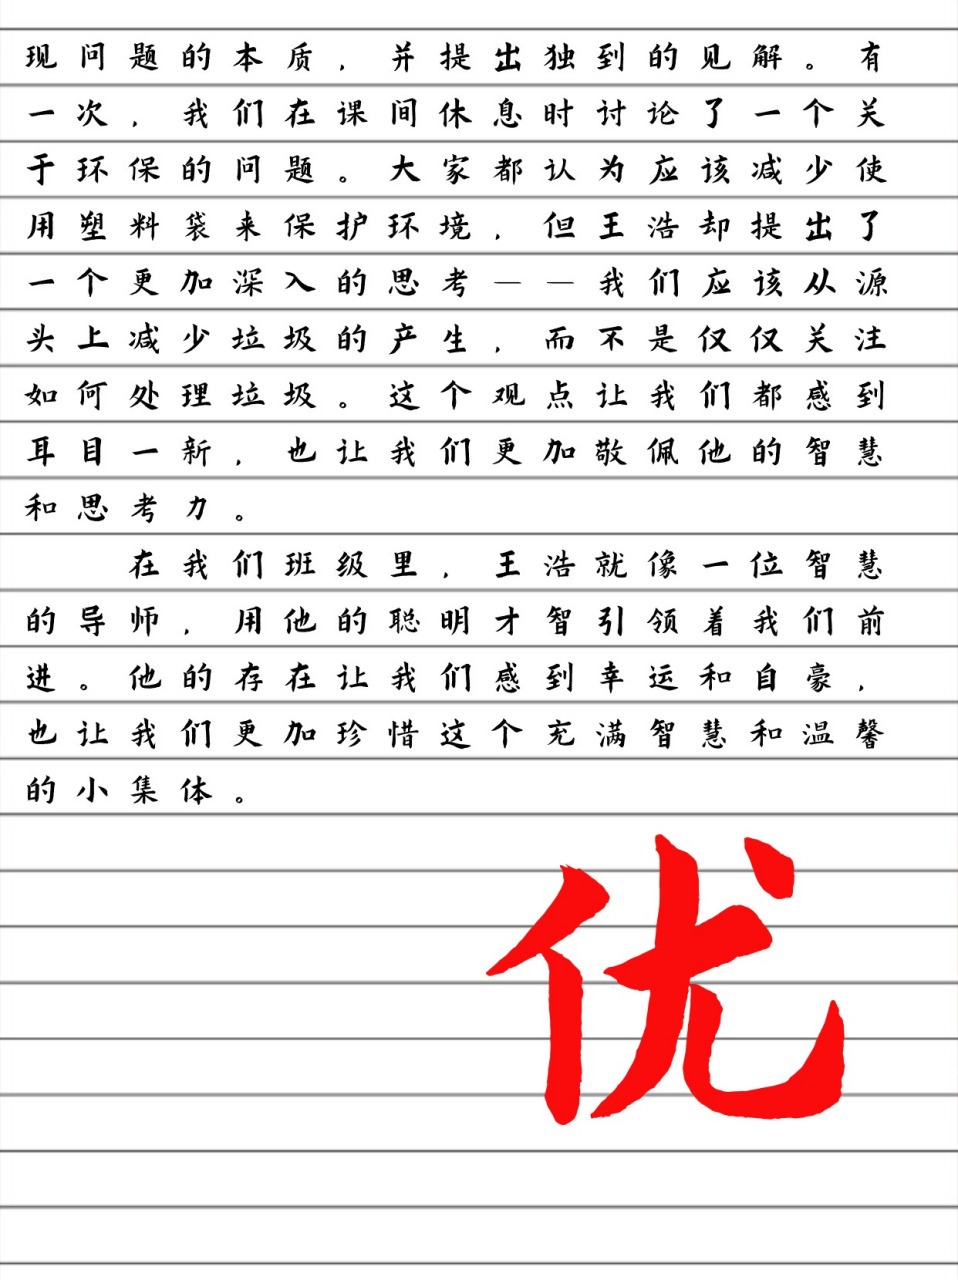 现问题的本质，并提出独到的见解。有
一次，我们在课间休息时讨论了一个关
于环保的问题。大家都认为应该减少使
用塑料袋来保护环境，但王浩却提出了
一个更加深入的思考——我们应该从源
头上减少垃圾的产生，而不是仅仅关注
如何处理垃圾。这个观点让我们都感到
耳目一新，也让我们更加敬佩他的智慧
和思考力。
在我们班级里，王浩就像一位智慧
的导师，用他的聪明才智引领着我们前
进。他的存在让我们感到幸运和自豪，
也让我们更加珍惜这个充满智慧和温馨
的小集体。
优